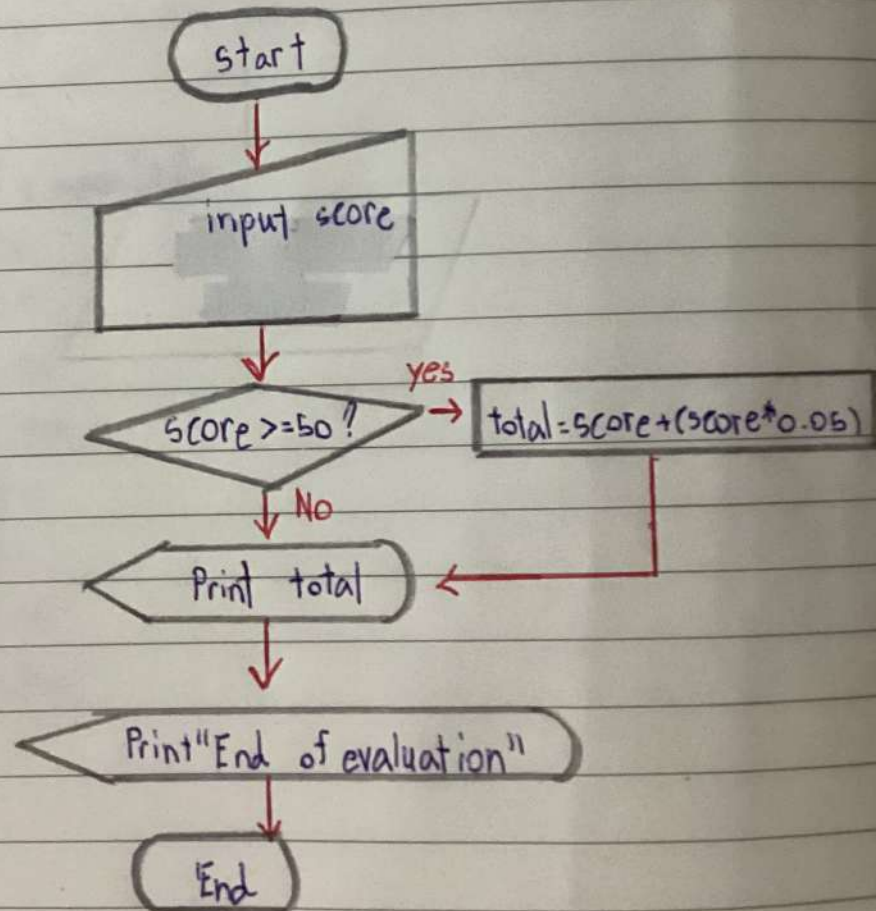 start
input score
score >= 50 ?
yes
total = score + (score * 0.05)
No
Print total
Print "End of evaluation"
End